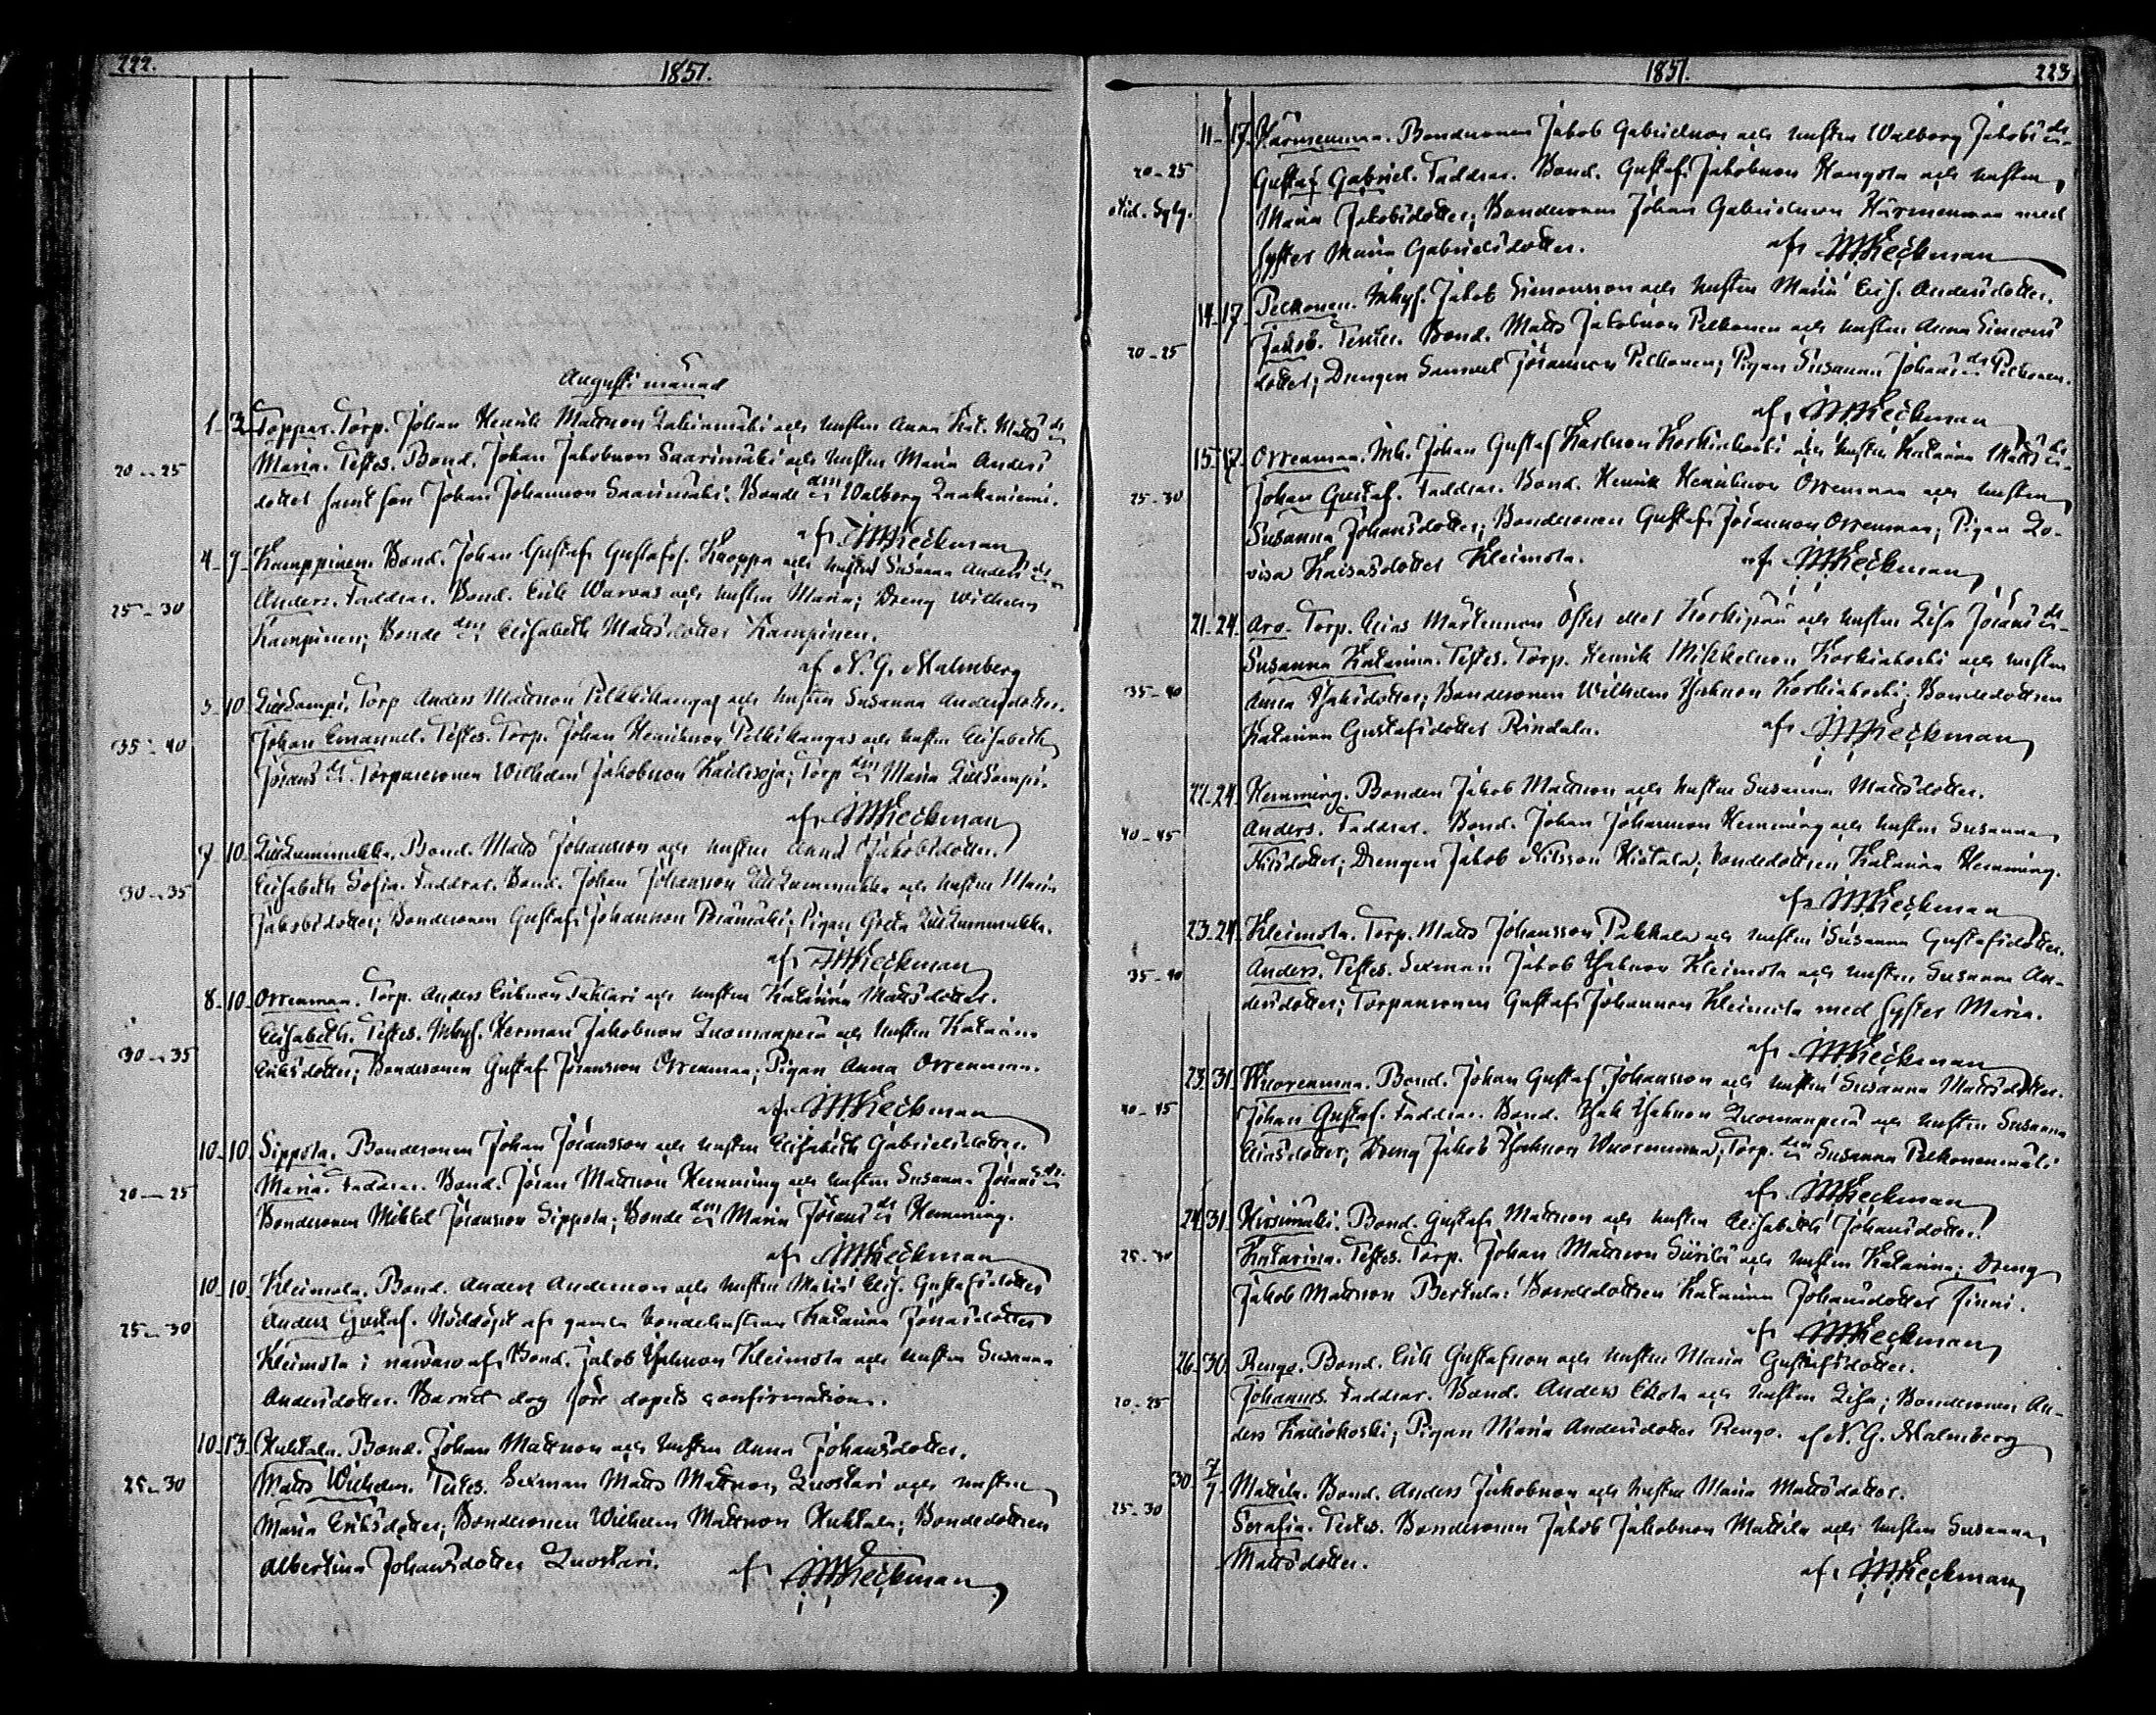 222.
1851.
Augusti månad
1 3 Toppar. Torp. Johan Henrik Mattsson och hustru Anna Kat. Matts dr
20-25 Maria. Testes. Bond. Johan Jakobsson Saarimäki och hustru Maria Anders
dotter samt son Johan Johansson Saarimäki. Bonde drn Walborg Laakaniemi.
af
4 9 Kamppinen. Bond. Johan Gustaf Gustafs. Knoppa och hustru Susanna Anders dr
25-30 Anders. Faddrar. Bond. Erik Warvas och hustru Maria; Dreng Wilhelm
Kampinen; Bonde drn Elisabeth Mattsdotter Kampinen.
af N. G. Malmberg
5 10 Lillkampi. Torp Anders Mattsson Pelkkikangas och hustru Susanna Andersdotter.
35-40 Johan Emanuel. Testes. Torp. Johan Henriksson Pelkikangas och hustru Elisabeth
Jörans dr. Torparesonen Wilhelm Jakobsson; Torp drn Maria Lillkampi.
af
7 10 Lillkummukka. Bond. Matts Johansson och hustru Anna Jakobsdotter.
30-35 Elisabeth Sofia. Faddrar. Bond. Johan Johansson Lillkummukka och hustru Maria
Jakobsdotter; Bondesonen Gustaf Johansson; Pigan Greta Lillkummukka.
af
8 10 Orrenmaa. Torp. Anders Eriksson och hustru Katarina Mattsdotter.
30-35 Elisabeth. Testes. Inhys. Herman Jakobsson Luomanperä och hustru Katarina
Eriksdotter; Bondesonen Gustaf Jöransson Orrenmaa; Pigan Anna Orrenmaa.
af
10 10 Sippola. Bondesonen Johan Jöransson och hustru Elisabeth Gabrielsdotter.
20-25 Maria. Faddrar. Bond. Jöran Mattsson Hemming och hustru Susanna Jörans dr.
Bondesonen Mikkel Jöransson Sippola; Bonde drn Maria Jörans dr Hemming.
af
10 10 Kleimola. Bond. Anders Andersson och hustru Maria Elis. Gustafsdotter
25-30 Anders Gustaf. Nöddöpt af gamla bondehustrun Katarina Jonasdotter
Kleimola i närvaro af Bond. Jakob Isaksson Kleimola och hustru Susanna
Andersdotter. Barnet dog före dopets confirmation.
10 13 Huhtala. Bond. Johan Mattsson och hustru Anna Johansdotter.
25-30 Matts Wilhelm. Testes. Sexman Matts Mattsson Luostari och hustru
Maria Eriksdotter; Bondesonen Wilhelm Mattsson Huhtala; Bondedottren
Albertina Johansdotter Luostari.
af
1851.
223
11 17 Härmenmaa. Bondsonen Jakob Gabrielsson och hustru Walborg Jakobs dr
20-25 Gustaf Gabriel. Faddrar. Bond. Gustaf Jakobsson Kangola och hustru
Maria Jakobsdotter; Bondesonen Johan Gabrielsson Härmenmaa med
syster Maria Gabrielsdotter. af
14 17 Pelkonen. Inhys. Jakob Simonsson och hustru Maria Elis. Andersdotter.
20-25 Jakob. Testes. Bond. Matts Jakobsson Pelkonen och hustru Anna Simons
dotter; Drengen Samuel Jöransson Pelkonen; Pigan Susanna Johans dr Pelkonen.
af
15 17 Orrenmaa. Inh. Johan Gustaf Karlsson Korkiakoski och hustru Katarina Matts dr
25-30 Johan Gustaf. Faddrar. Bond. Henrik Henriksson Orrenmaa och hustru
Susanna Johansdotter; Bondesonen Gustaf Jöransson Orrenmaa; Pigan Lo-
visa Kaisasdotter Kleimola. af
21 24 Aro. Torp. Elias Mårtensson Öster eller Korkipää och hustru Lisa Jörans dr
35-40 Susanna Katarina. Testes. Torp. Henrik Mikkelsson Korkiakoski och hustru
Anna Isaksdotter; Bondesonen Wilhelm Isaksson Korkiakoski; Bondedottren
Katarina Gustafsdotter Rindala. af
22 24 Hemming. Bonden Jakob Mattsson och hustru Susanna Mattsdotter.
40-45 Anders. Faddrar. Bond. Johan Johansson Hemming och hustru Susanna
Nilsdotter; Drengen Jakob Nilsson Hietala; bondedottren Katarina Hemming.
af
23 24 Kleimola. Torp. Matts Johansson Pakkala och hustru Susanna Gustafsdotter.
35-40 Anders. Testes. Sexman Jakob Isaksson Kleimola och hustru Susanna An-
dersdotter; Torparesonen Gustaf Johansson Kleimola med syster Maria.
af
23 31 Wuorenmaa. Bond. Johan Gustaf Johansson och hustru Susanna Mattsdotter.
40-45 Johan Gustaf. Faddrar. Bond. Isak Isaksson Luomanperä och hustru Susanna
Eliasdotter; Dreng Jakob Isaksson Wuorenmaa; Torp. drn Susanna Pelkonenmäki
af
24 31 Kirsimäki. Bond. Gustaf Mattsson och hustru Elisabeth Johansdotter.
25-30 Katarina. Testes. Torp. Johan Mattsson Siirilä och hustru Katarina; Dreng
Jakob Mattsson Bertula; Bondedottren Katarina Johansdotter Finni.
af
26 30 Rengo. Bond. Erik Gustafsson och hustru Maria Gustafsdotter.
20-25 Johannes. Faddrar. Bond. Anders Ekola och hustru Lisa; Bondesonen An-
ders; Pigan Maria Andersdotter Rengo. af N. G. Malmberg
30 7/9 Mattila. Bond. Anders Jakobsson och hustru Maria Mattsdotter.
25-30 Serafia. Testes. Bondesonen Jakob Jakobsson Mattila och hustru Susanna
Mattsdotter.
af